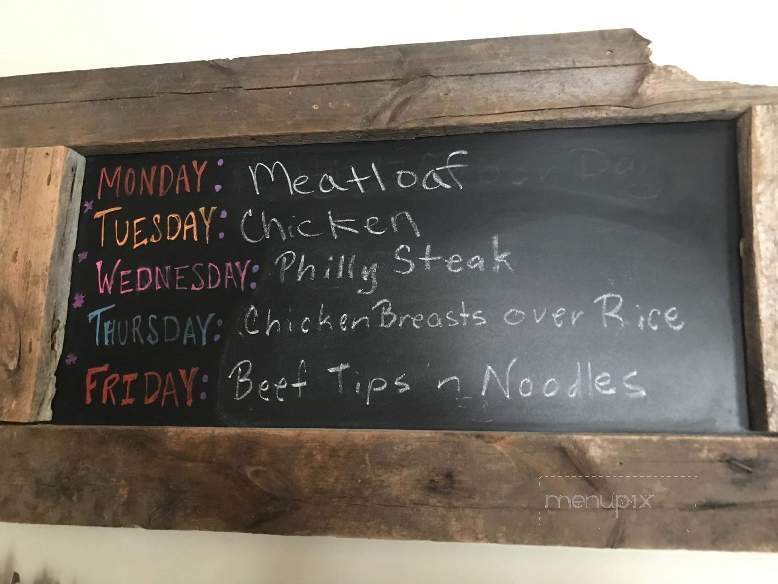 MONDAY: Meatloaf
TUESDAY: Chicken
WEDNESDAY: Philly Steak
THURSDAY: Chicken Breasts over Rice
FRIDAY: Beef Tips 'n Noodles
menupix